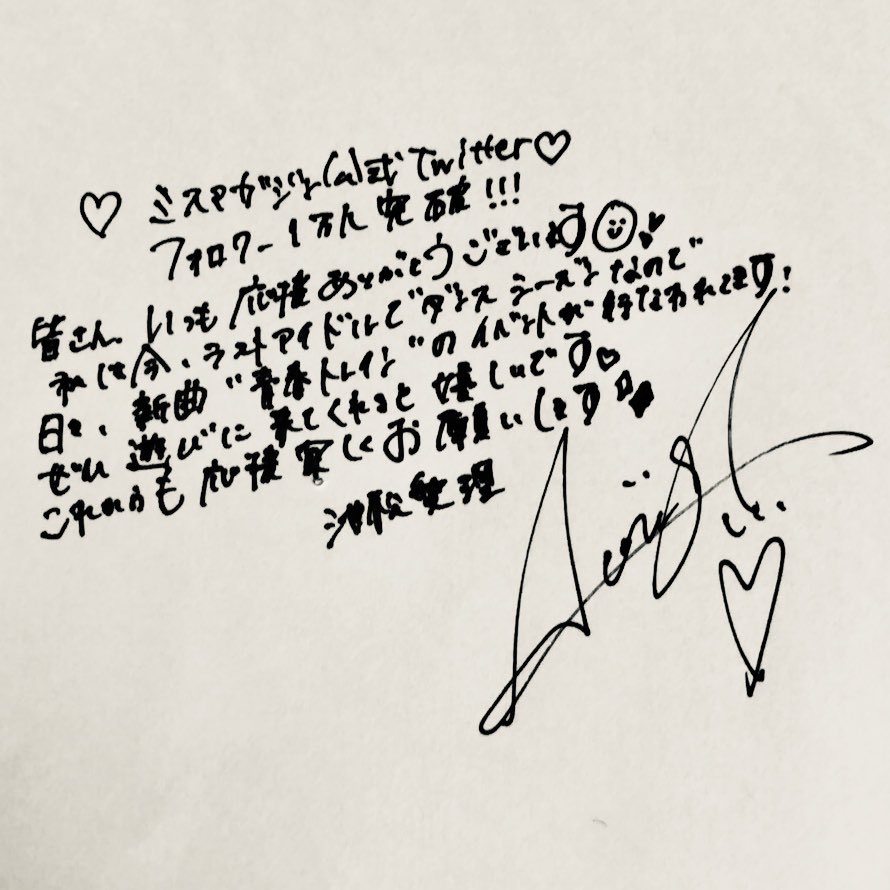 ♡ ミスマガジン公式Twitter♡
フォロワー1万人突破!!!
皆さん、いつも応援ありがとうございます
私は今、ラストアイドルでダンスシーズンなので
日々、新曲"青春トレイン"のイベントが行なわれてます!
ぜひ遊びに来てくれると嬉しいです♥
これからも応援宜しくお願いします
池松愛理